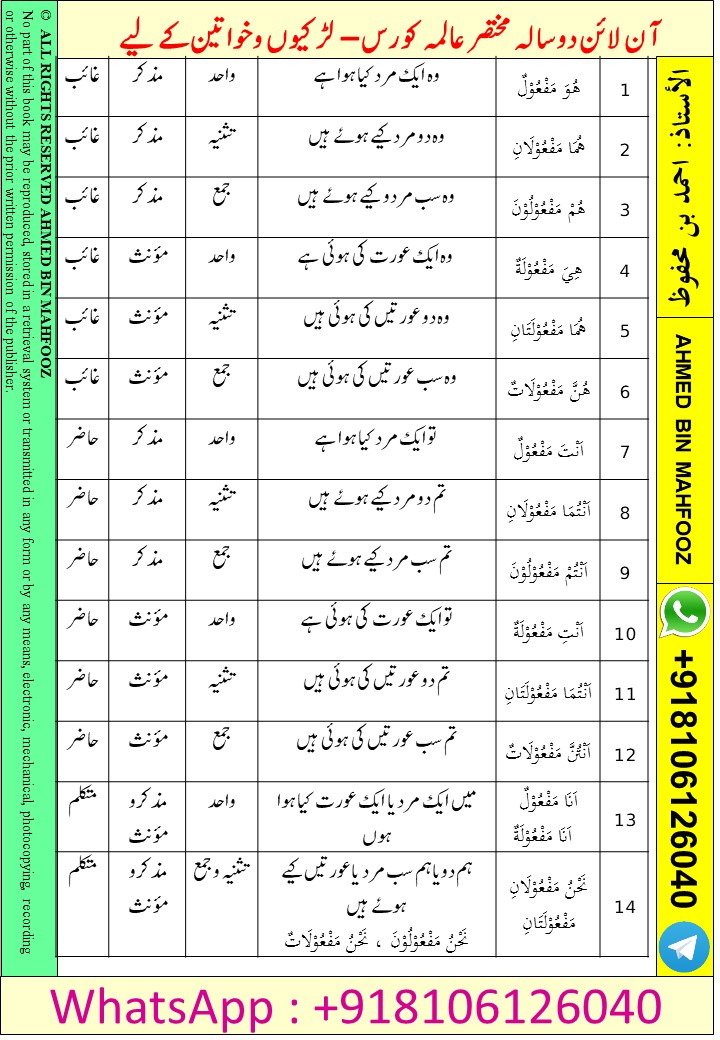 آن لائن دو سالہ مختصر عالمہ کورس – لڑکیوں و خواتین کے لیے
1 هُوَ مَفْعُوْلٌ وہ ایک مرد کیا ہوا ہے واحد مذکر غائب
2 هُمَا مَفْعُوْلَانِ وہ دو مرد کیے ہوئے ہیں تثنیہ مذکر غائب
3 هُمْ مَفْعُوْلُوْنَ وہ سب مرد و کیے ہوئے ہیں جمع مذکر غائب
4 هِيَ مَفْعُوْلَةٌ وہ ایک عورت کی ہوئی ہے واحد مؤنث غائب
5 هُمَا مَفْعُوْلَتَانِ وہ دو عورتیں کی ہوئی ہیں تثنیہ مؤنث غائب
6 هُنَّ مَفْعُوْلَاتٌ وہ سب عورتیں کی ہوئی ہیں جمع مؤنث غائب
7 اَنْتَ مَفْعُوْلٌ تو ایک مرد کیا ہوا ہے واحد مذکر حاضر
8 اَنْتُمَا مَفْعُوْلَانِ تم دو مرد کیے ہوئے ہیں تثنیہ مذکر حاضر
9 اَنْتُمْ مَفْعُوْلُوْنَ تم سب مرد کیے ہوئے ہیں جمع مذکر حاضر
10 اَنْتِ مَفْعُوْلَةٌ تو ایک عورت کی ہوئی ہے واحد مؤنث حاضر
11 اَنْتُمَا مَفْعُوْلَتَانِ تم دو عورتیں کی ہوئی ہیں تثنیہ مؤنث حاضر
12 اَنْتُنَّ مَفْعُوْلَاتٌ تم سب عورتیں کی ہوئی ہیں جمع مؤنث حاضر
13 اَنَا مَفْعُوْلٌ میں ایک مرد یا ایک عورت کیا ہوا واحد مذکر و متکلم
اَنَا مَفْعُوْلَةٌ ہوں مؤنث
14 نَحْنُ مَفْعُوْلَانِ ہم دو یا ہم سب مرد یا عورتیں کیے تثنیہ و جمع مذکر و متکلم
مَفْعُوْلَتَانِ ہوئے ہیں مؤنث
نَحْنُ مَفْعُوْلُوْنَ ، نَحْنُ مَفْعُوْلَاتٌ
الأستاذ: احمد بن محفوظ
AHMED BIN MAHFOOZ
+918106126040
© ALL RIGHTS RESERVED AHMED BIN MAHFOOZ
No part of this book may be reproduced, stored in a retrieval system or transmitted in any form or by any means, electronic, mechanical, photocopying, recording
or otherwise without the prior written permission of the publisher.
WhatsApp : +918106126040